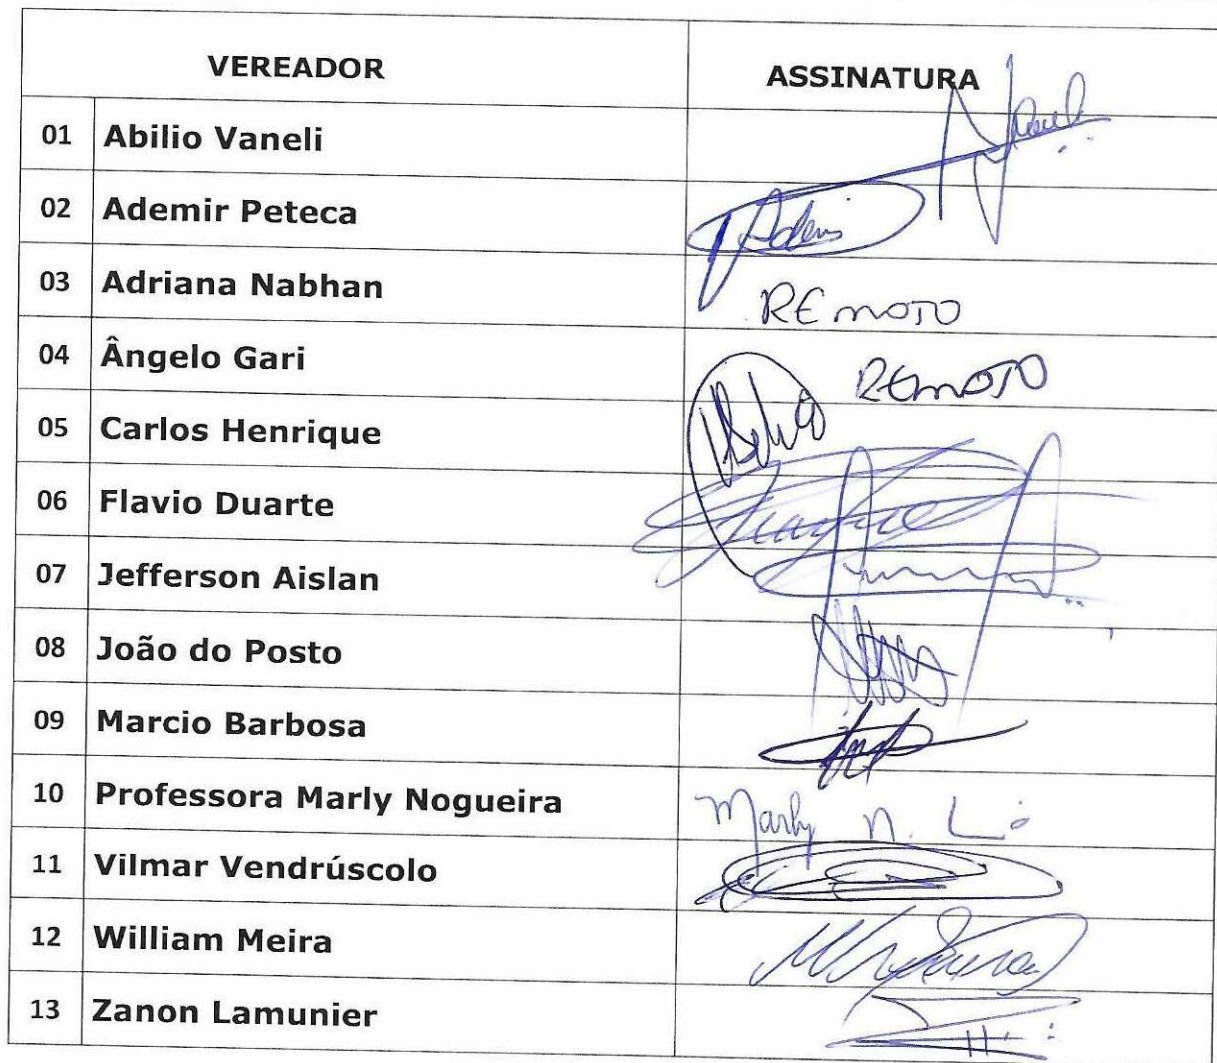 VEREADOR ASSINATURA
01 Abilio Vaneli
02 Ademir Peteca
03 Adriana Nabhan REMOTO
04 Ângelo Gari REMOTO
05 Carlos Henrique
06 Flavio Duarte
07 Jefferson Aislan
08 João do Posto
09 Marcio Barbosa
10 Professora Marly Nogueira Marly N.
11 Vilmar Vendrúscolo
12 William Meira
13 Zanon Lamunier